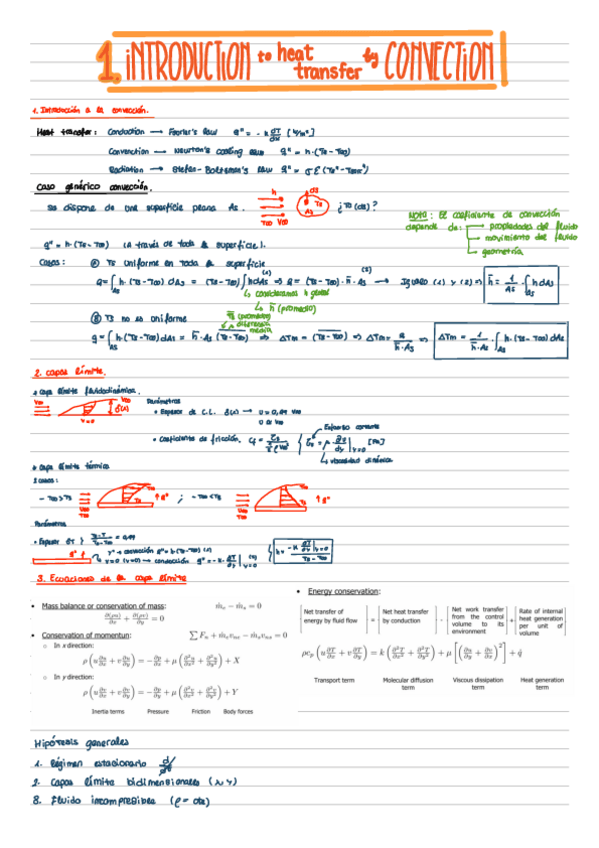 1. INTRODUCTION to heat transfer by CONVECTION
1. Introducción a la convección.
Heat transfer: Conduction → Fourier's law q" = - k dT/dx [W/m²]
Convenction → Newton's cooling law q" = h·(Ts - T∞)
Radiation → Stefan-Boltzman's law q" = σ ε (Ts⁴ - T∞⁴)
Caso genérico convección.
Se dispone de una superficie plana As.
h
T∞ V∞
As
Ts
Nota: El coeficiente de convección
depende de: → propiedades del fluido
→ movimiento del fluido
→ geometría
q" = h·(Ts - T∞) (A través de toda la superficie).
Casos: Ⓐ Ts uniforme en toda la superficie
→ consideramos h global
→ h̄ (promedio)
Ⓑ Ts no es uniforme
2. Capas límite.
* Capa límite fluidodinámica.
Parámetros
• Espesor de C.L. δ(x) → u = 0,99 V∞
• Coeficiente de fricción.
Esfuerzo cortante
viscosidad dinámica
* Capa límite térmica
2 casos:
- T∞ > Ts ; - T∞ < Ts
Parámetros
• Espesor δT
3. Ecuaciones de la capa límite
• Mass balance or conservation of mass: ṁe − ṁs = 0
∂(ρu)/∂x + ∂(ρv)/∂y = 0
• Conservation of momentun:
○ In x direction:
ρ(u ∂u/∂x + v ∂u/∂y) = −∂p/∂x + μ(∂²u/∂x² + ∂²u/∂y²) + X
○ In y direction:
ρ(u ∂v/∂x + v ∂v/∂y) = −∂p/∂y + μ(∂²v/∂x² + ∂²v/∂y²) + Y
Inertia terms Pressure Friction Body forces
• Energy conservation:
Net transfer of energy by fluid flow = Net heat transfer by conduction - Net work transfer from the control volume to its environment + Rate of internal heat generation per unit of volume
Transport term Molecular diffusion term Viscous dissipation term Heat generation term
Hipótesis generales
1. Régimen estacionario
2. Capas límite bidimensionales (x, y)
3. Fluido incompresible (ρ = cte)